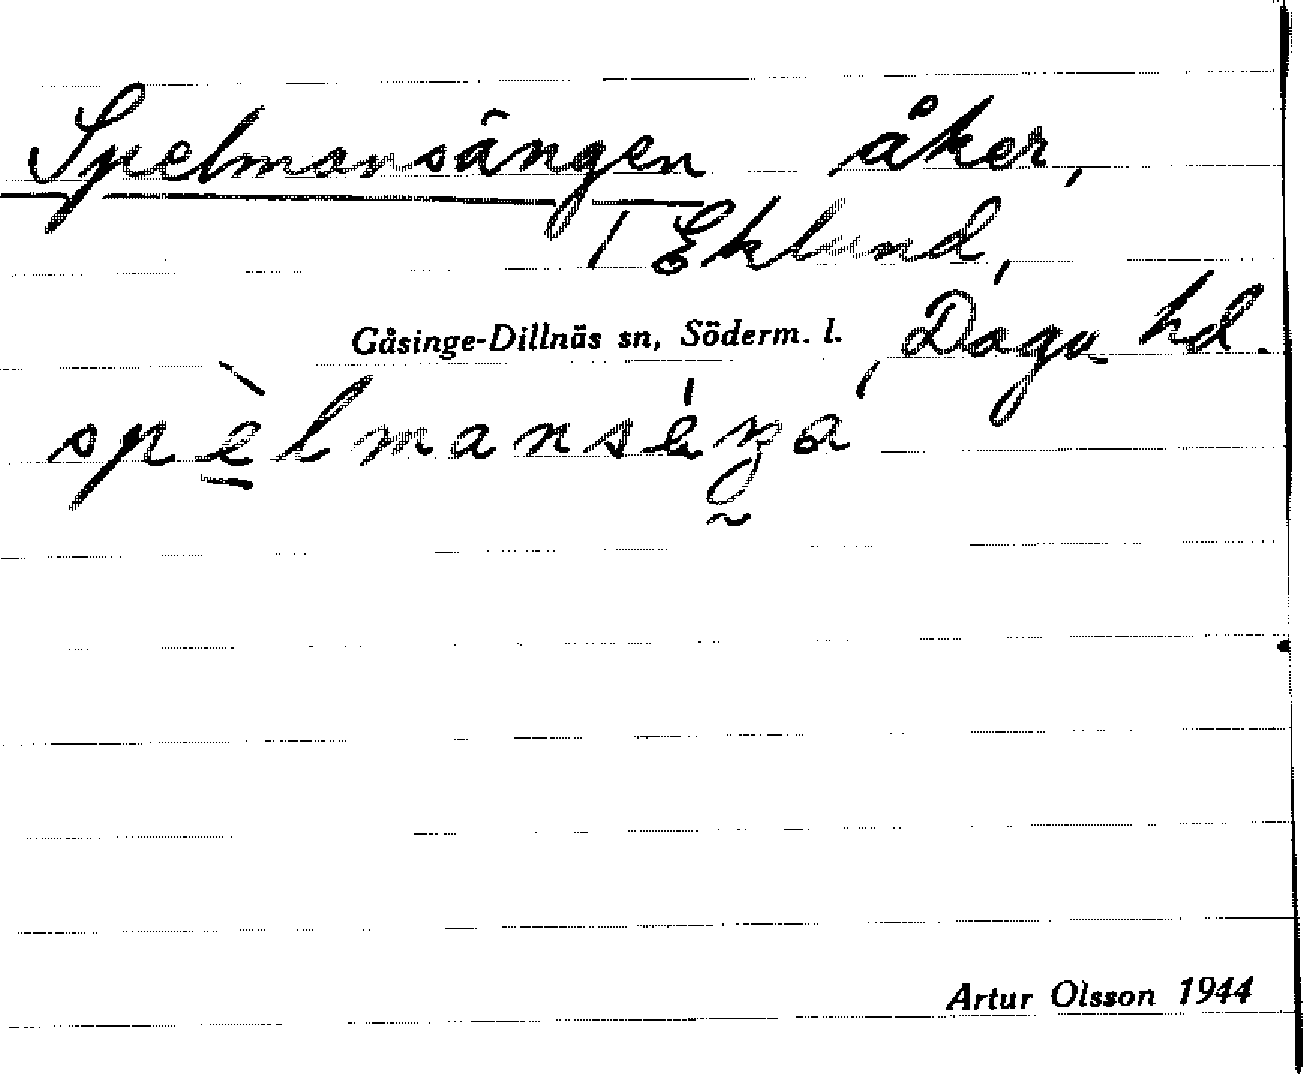 Spelmansängen åker,
/ Eklund,
Gåsinge-Dillnäs sn, Söderm. l., Daga hd.
spèlmanséŋa
Artur Olsson 1944